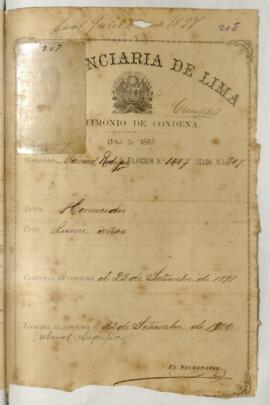 de 1897
207
NCIARIA DE LIMA
Cumplió
TIMONIO DE CONDENA
Año de 189
Rematado Manuel FILIACION N.º 1407 CELDA N.º 207
Delito Homicidio
Pena Quince años
Comienza la condena el 22 de Setiembre de 1891
la condena el 22 de Setiembre de 1906
Manuel
EL SECRETARIO